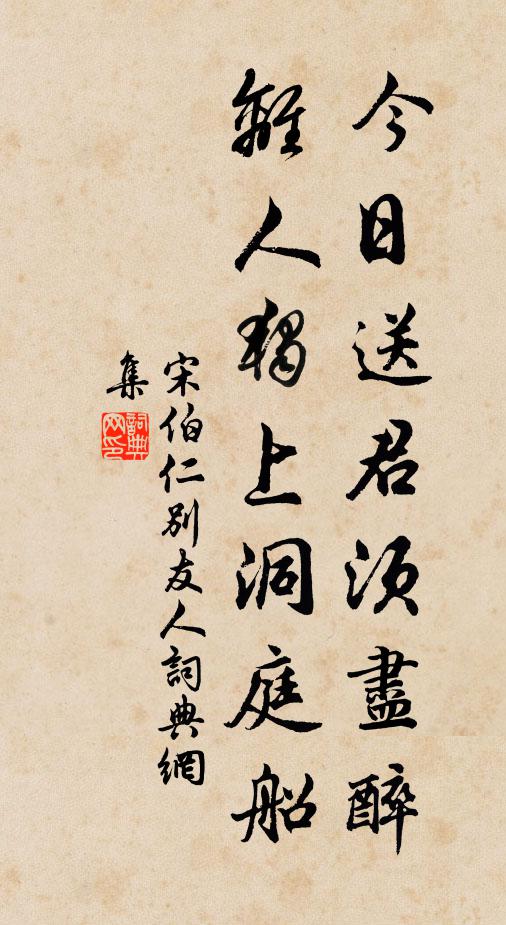 今日送君須盡醉
離人獨上洞庭船
宋伯仁別友人詞典網
集
詞典
网印